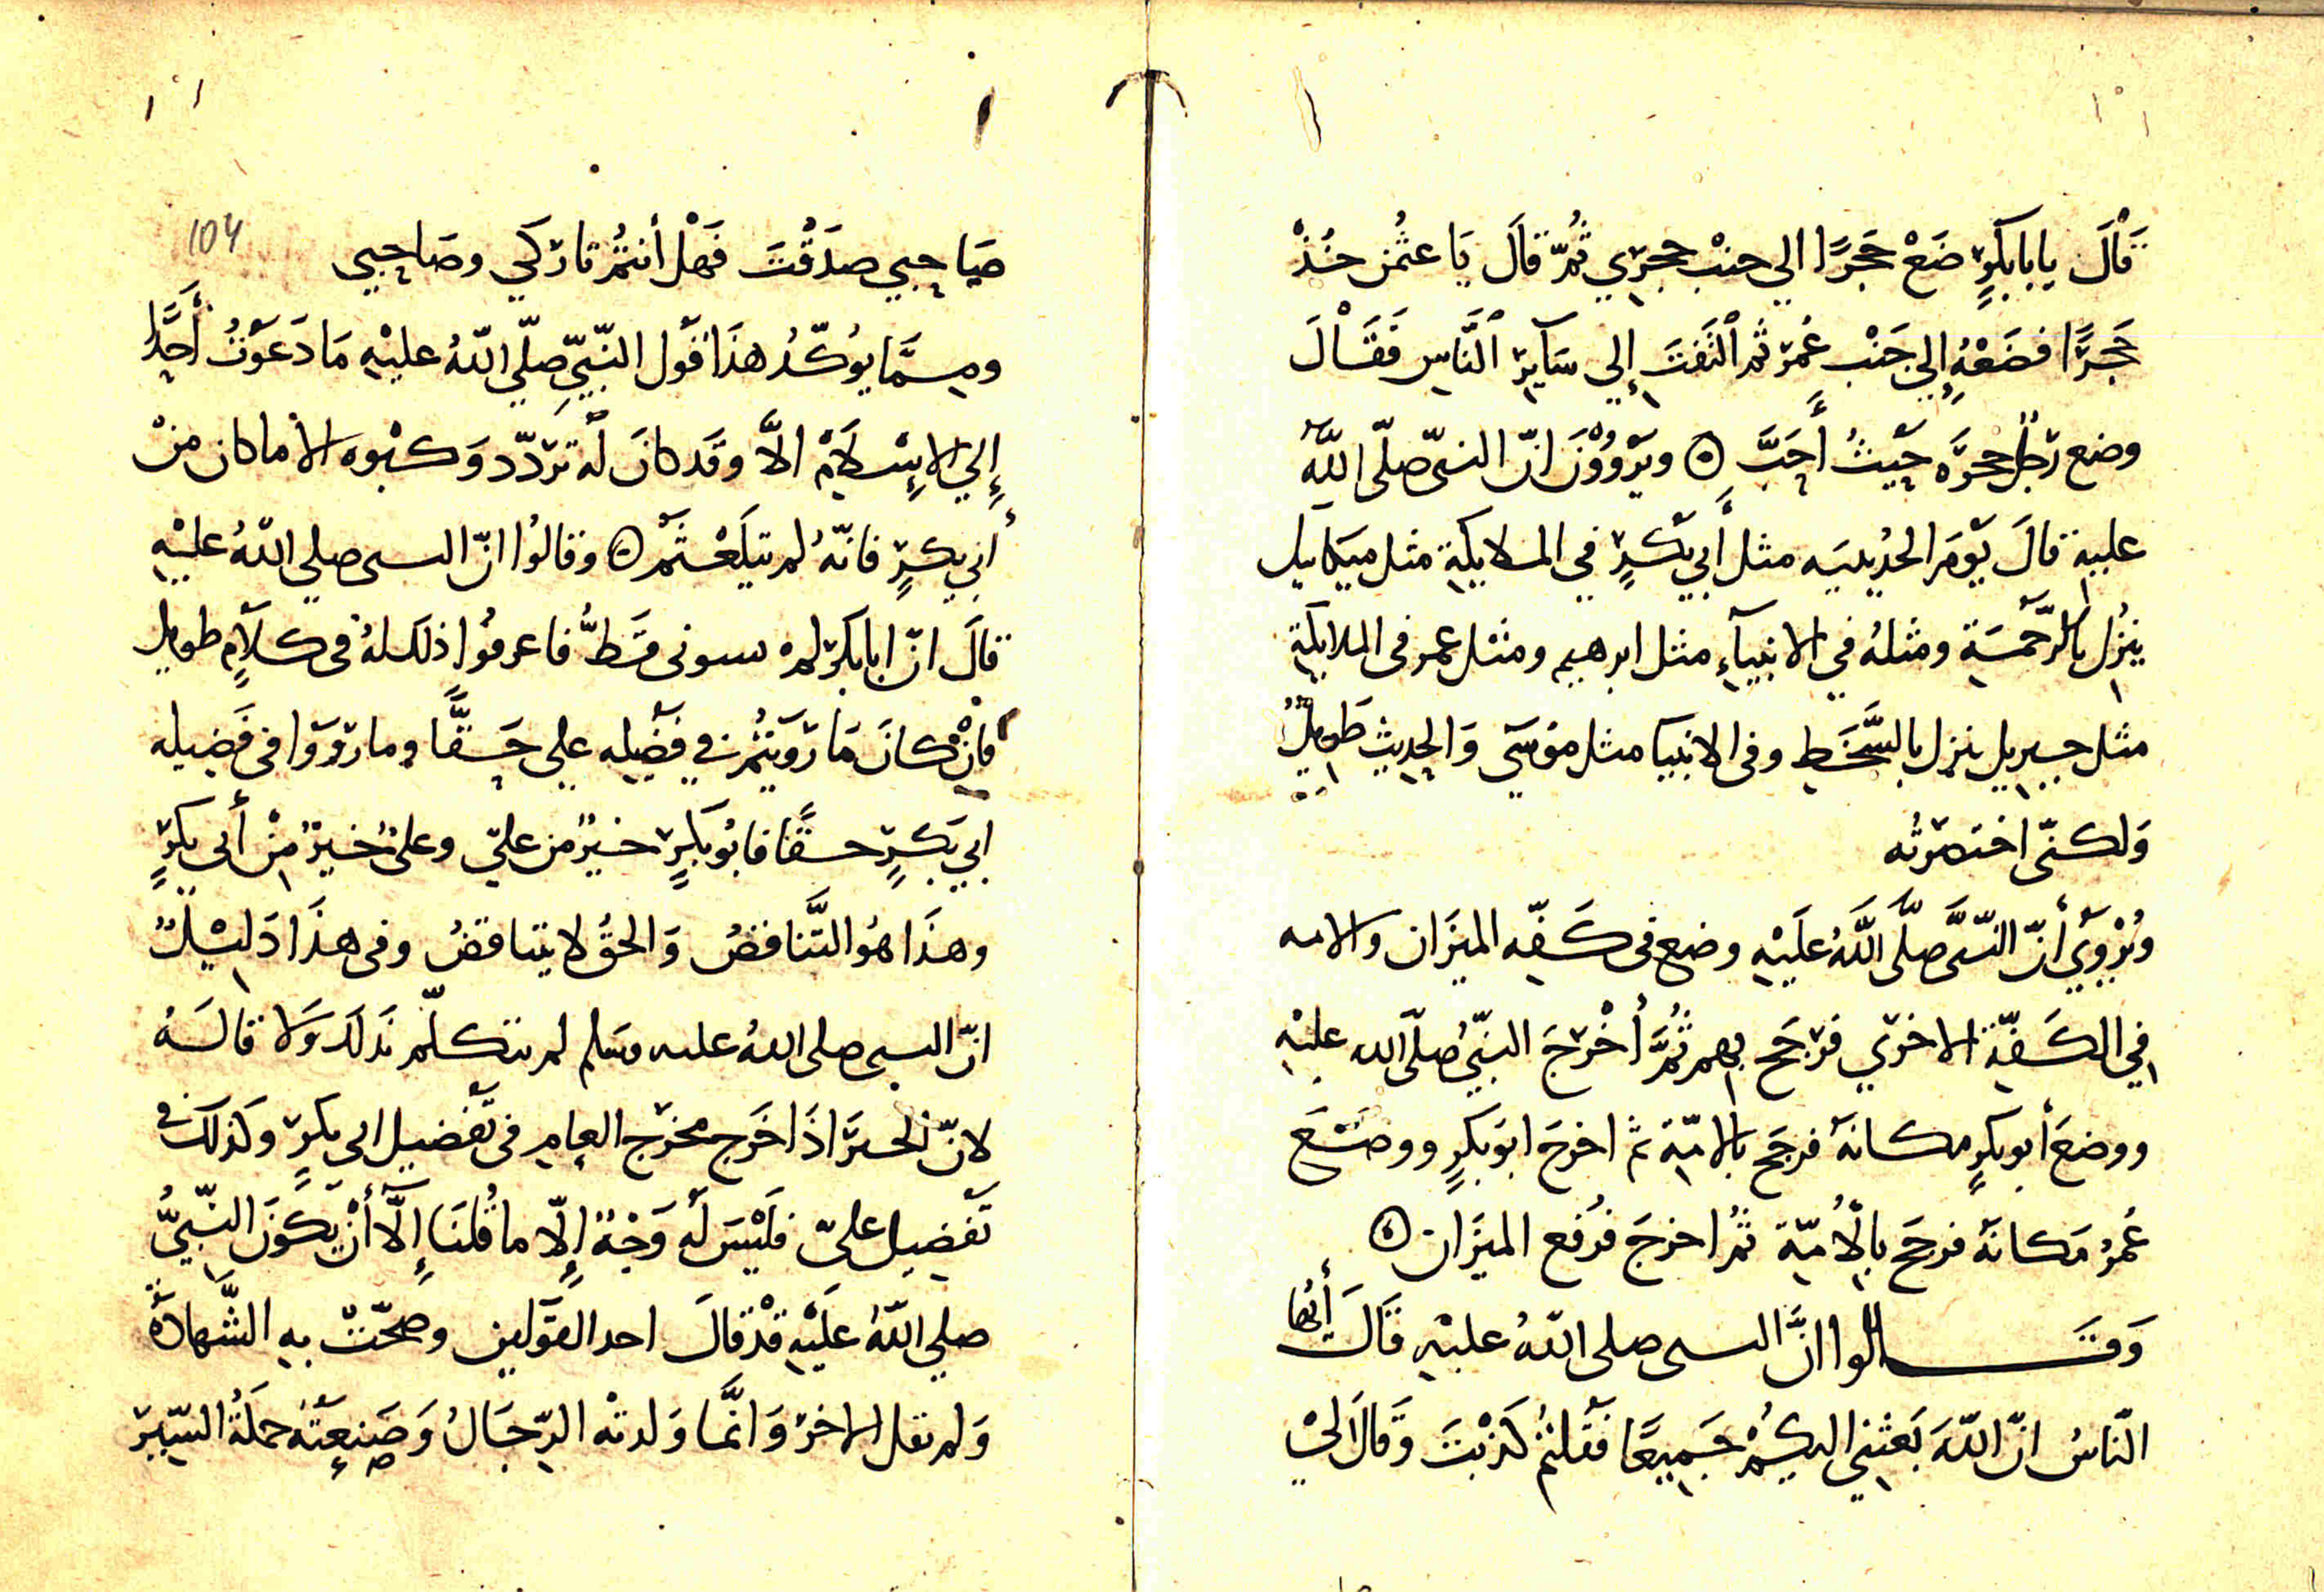 قَالَ يابابكرٍ ضَعْ حَجَرًا الي جنْب حجرَي ثُمّ قالَ يَا عثمُن خُذْ
حَجَرًا فضَعْهُ إلي جَنْب عُمرَ ثم الْتَفَتَ إلي سَآيِر النَّاسِ فَقَالَ
وضع رَجُلٌ حجرَه حَيْثُ أَحَبَّ ۞ ويَرْوُوْنَ انّ النبيّ صلّى اللهُ
عليهِ قالَ يَوْمَ الحُديبيَه مثل أَبي بَكْرٍ في الملايكةِ مثل ميكايل
ينزُل بالرَّحْمَةِ ومثلهُ في الانبيآءِ مثل ابرهيم ومثْل عمر في الملايكةِ
مثل جبريل ينزل بالسَّخَطِ وفى الانبيا مثل موُسَي وَالحديث طَويلٌ
وَلكنّى اختصرتُه
ويُرْوَي أَنّ النّبىَّ صلَّى اللَّهُ عَلَيْهِ وضع فى كَفّه الميزَان والامه
في الكَفّةِ الاخرَي فرَجَح بهم ثُمَّ أُخْرَجَ النبّيُ صلّى الله عليْهِ
ووضعَ أبوبكرٍ مكانهَ فرجَح بالامّةِ ثم اخرجَ ابوَبكرٍ ووضَعَ
عُمرُ مَكانهَ فرجَح بالْأُمّةِ ثمُ اخرجَ فرُفع الميزَان ۞
وَقَالوا انَّ النبى صلى اللّهُ عليْهِ قَالَ أيُها
النّاسُ انّ اللّهَ بَعثَني اليكُمْ جَميعًا فَقلتمُ كذبْتَ وَقالَ ليْ
104
صَاحِبي صدَقْتَ فَهْل أنتمُ تاركي وصَاحِبي
ومِمَّا يؤكّدُ هذَا قَول النّبيِّ صلّي اللّهُ عليْهِ مَا دَعَوْتُ أَحَدًا
إلي الاِسْلَامْ الاَّ وقَد كانَ لَه تردّد وَكبْوه الا ما كان منْ
أبي بكرٍ فانّهُ لم يتلَعْثَمْ ۞ وقالوُا انّ النبى صلي اللّهُ عليْهِ
قالَ انّ ابابكر لم يسونى قَطُّ فاعرفوُا ذلك لهُ فى كلَامٍ طويل
فانْ كانَ مَا رَوَيتمُ في فضَيله علي حَقًّا وما رَوَوَا فى فَضيله
ابي بَكرٍ حقًّا فابوُ بكرٍ خيرٌ من عليّ وعلىٌ خيرٌ مِنْ أبى بكرٍ
وهذَا هوُ التَّناقضُ وَالحقُ لا يتناقضُ وفى هذَا دَليْلٌ
انّ النبى صلى اللهُ عليه وسَلم لم يتكلّم بذَلك وَلا قالَهُ
لانّ الخبرَ اذَا خَرج مخرَج العام فى تَفْضيل ابي بكرٍ وكذلكَ في
تَفْضيل عليّ فلَيْسَ لَه وَجْهٌ إلّا ما قُلنَا إلَّا أَنْ يَكوُنَ النّبيُّ
صلي اللّهُ علَيْهِ قدْ قالَ احد القوَلين وصحّتْ بهِ الشَّهادَةُ
وَلم يقل الاخرَ وَانَّما وَلدتْه الرّجَالُ وَصَنعَتْهُ حملَةُ السِّيَر